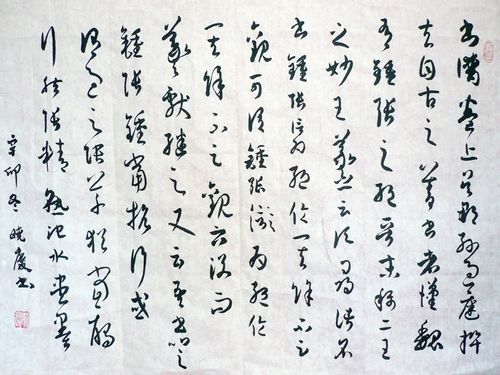 書譜卷上吳郡孫過庭撰
夫自古之善書者漢魏
有鍾張之絕晉末稱二王
之妙王羲之云頃尋諸名
書鍾張信為絕倫其餘不足
觀可謂鍾張為絕倫
其餘不足觀云沒而
羲獻繼之又云吾書比之
鍾張鍾當抗行或
謂過之張草猶當雁
行然張精熟池水盡墨
辛卯冬曉慶書